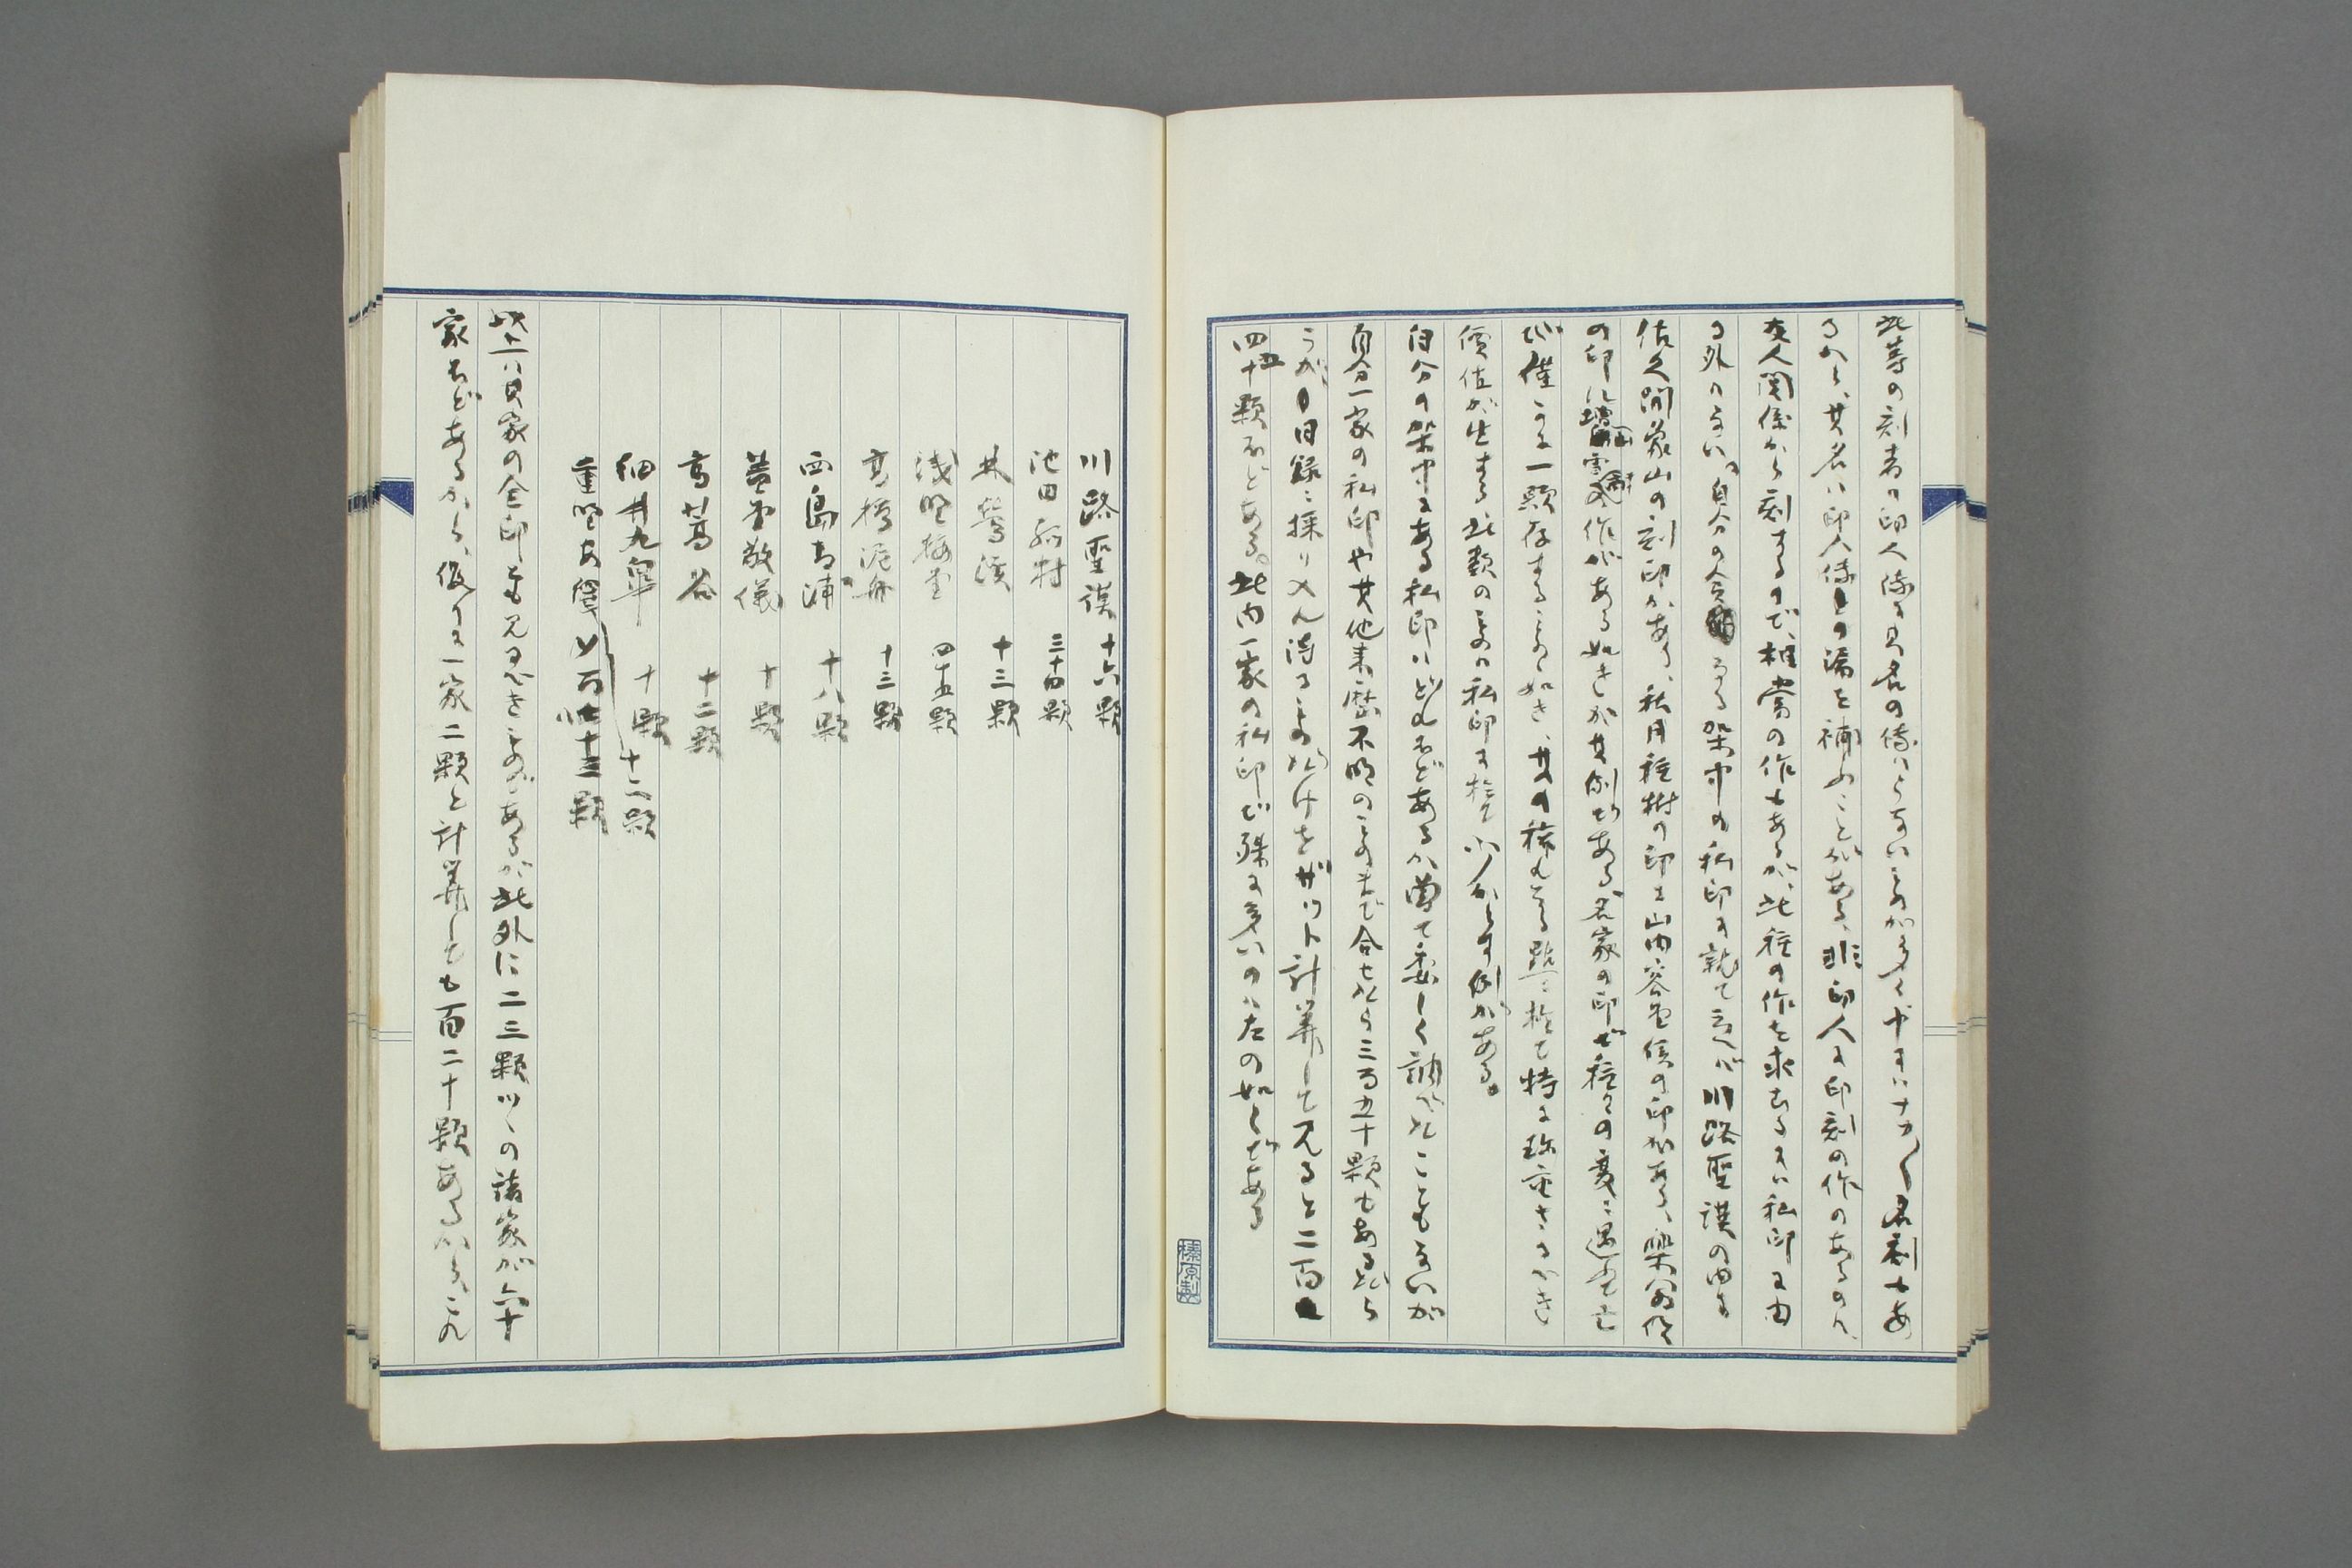 此等の刻者の印人傳に其名の傳はらないものが多く中にはなか〱名刻もあ
るから、其名は印人傳の漏を補ふことがある、非印人に印刻の作のあるのハ
友人関係から刻するので、相當の作もあるが、此種の作を求むるには私印に由
る外はない。自分の 架中の私印に就て云へば川路聖謨の内に
佐久間象山の刻印があり、秋月種樹の印に山内容堂侯の印がある、
の印に 作がある如きが其例である、名家の印で種々の変に遇ふて亡
び僅かに一顆存するものゝ如き、其の稀れなる點に於て特に珍重さるべき
價値が生ずる此類のものは私印に於て少からず例がある。
自分の架中にある私印はどれほどあるか曽て委しく調べたこともないが
自分一家の私印や其他来歴不明のものまで合せたら三百五十顆もあるだら
うが、目録に採り入れ得るものだけをザット計算して見ると二百
四十五顆ほどある。此内一家の私印で殊に多いのは左の如しである
川路聖謨 十六顆
池田孤村 三十四顆
林鶯渓 十三顆
浅野梅堂 四十五顆
高橋泥舟 十三顆
西島青浦 十八顆
蓋堂敬儀 十顆
高葛谷 十二顆
細井九皐 十顆
十二顆
此十一は其家の全印とも見るべきものであるが、此外に二三顆ツヽの諸家が六十
家ほどあるから、假りに一家二顆と計算しても百二十顆あるから、これ
榛原製